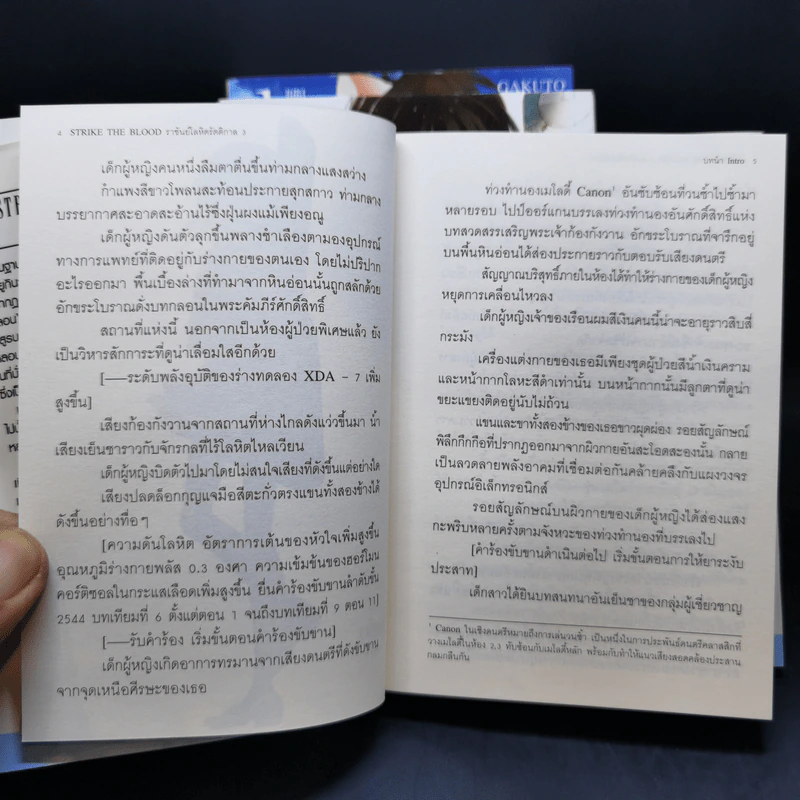 GAKUTO
4 STRIKE THE BLOOD ราชันย์โลหิตรัตติกาล 3
เด็กผู้หญิงคนหนึ่งลืมตาตื่นขึ้นท่ามกลางแสงสว่าง
กำแพงสีขาวโพลนสะท้อนประกายสุกสกาว ท่ามกลาง
บรรยากาศสะอาดสะอ้านไร้ซึ่งฝุ่นผงแม้เพียงอณู
เด็กผู้หญิงดันตัวลุกขึ้นพลางชำเลืองตามองอุปกรณ์
ทางการแพทย์ที่ติดอยู่กับร่างกายของตนเอง โดยไม่ปริปาก
อะไรออกมา พื้นเบื้องล่างที่ทำมาจากหินอ่อนนั้นถูกสลักด้วย
อักขระโบราณดั่งบทกลอนในพระคัมภีร์ศักดิ์สิทธิ์
สถานที่แห่งนี้ นอกจากเป็นห้องผู้ป่วยพิเศษแล้ว ยัง
เป็นวิหารสักการะที่ดูน่าเลื่อมใสอีกด้วย
[——ระดับพลังอุบัติของร่างทดลอง XDA – 7 เพิ่ม
สูงขึ้น]
เสียงก้องกังวานจากสถานที่ห่างไกลดังแว่วขึ้นมา น้ำ
เสียงเย็นชาราวกับจักรกลที่ไร้โลหิตไหลเวียน
เด็กผู้หญิงบิดตัวไปมาโดยไม่สนใจเสียงที่ดังขึ้นแต่อย่างใด
เสียงปลดล็อกกุญแจมือสีตะกั่วตรงแขนทั้งสองข้างได้
ดังขึ้นอย่างทื่อๆ
[ความดันโลหิต อัตราการเต้นของหัวใจเพิ่มสูงขึ้น
อุณหภูมิร่างกายพลัส 0.3 องศา ความเข้มข้นของฮอร์โมน
คอร์ติซอลในกระแสเลือดเพิ่มสูงขึ้น ยื่นคำร้องขับขานลำดับขั้น
2544 บทเทียมที่ 6 ตั้งแต่ตอน 1 จนถึงบทเทียมที่ 9 ตอน 11]
[——รับคำร้อง เริ่มขั้นตอนคำร้องขับขาน]
เด็กผู้หญิงเกิดอาการทรมานจากเสียงดนตรีที่ดังขับขาน
จากจุดเหนือศีรษะของเธอ
บทนำ Intro 5
ท่วงทำนองเมโลดี้ Canon¹ อันซับซ้อนที่วนซ้ำไปซ้ำมา
หลายรอบ ไปป์ออร์แกนบรรเลงท่วงทำนองอันศักดิ์สิทธิ์แห่ง
บทสวดสรรเสริญพระเจ้าก้องกังวาน อักขระโบราณที่จารึกอยู่
บนพื้นหินอ่อนได้ส่องประกายราวกับตอบรับเสียงดนตรี
สัญญาณบริสุทธิ์ภายในห้องได้ทำให้ร่างกายของเด็กผู้หญิง
หยุดการเคลื่อนไหวลง
เด็กผู้หญิงเจ้าของเรือนผมสีเงินคนนี้น่าจะอายุราวสิบสี่
กระมัง
เครื่องแต่งกายของเธอมีเพียงชุดผู้ป่วยสีน้ำเงินคราม
และหน้ากากโลหะสีดำเท่านั้น บนหน้ากากนั้นมีลูกตาที่ดูน่า
ขยะแขยงติดอยู่นับไม่ถ้วน
แขนและขาทั้งสองข้างของเธอขาวผุดผ่อง รอยสัญลักษณ์
พิลึกกึกกือที่ปรากฏออกมาจากผิวกายอันสะโอดสะองนั้น กลาย
เป็นลวดลายพลังอาคมที่เชื่อมต่อกันคล้ายคลึงกับแผงวงจร
อุปกรณ์อิเล็กทรอนิกส์
รอยสัญลักษณ์บนผิวกายของเด็กผู้หญิงได้ส่องแสง
กะพริบหลายครั้งตามจังหวะของท่วงทำนองที่บรรเลงไป
[คำร้องขับขานดำเนินต่อไป เริ่มขั้นตอนการให้ยาระงับ
ประสาท]
เด็กสาวได้ยินบทสนทนาอันเย็นชาของกลุ่มผู้เชี่ยวชาญ
¹ Canon ในเชิงดนตรีหมายถึงการเล่นวนซ้ำ เป็นหนึ่งในการประพันธ์ดนตรีคลาสสิกที่
วางเมโลดี้ในห้อง 2,3 ทับซ้อนกับเมโลดี้หลัก พร้อมกับทำให้แนวเสียงสอดคล้องประสาน
กลมกลืนกัน